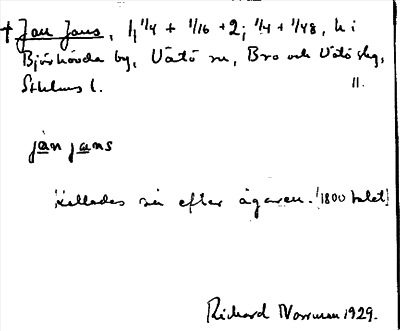 † Jan Jans, 1, 1/4 + 1/16 + 2; 1/4 + 1/48, h i
Björkövda by, Vätö sn, Bro och Vätö skg,
Sthlms l. 11.
jan jans
Kallades så efter ägaren. (1800 talet)
Richard Norrman 1929.